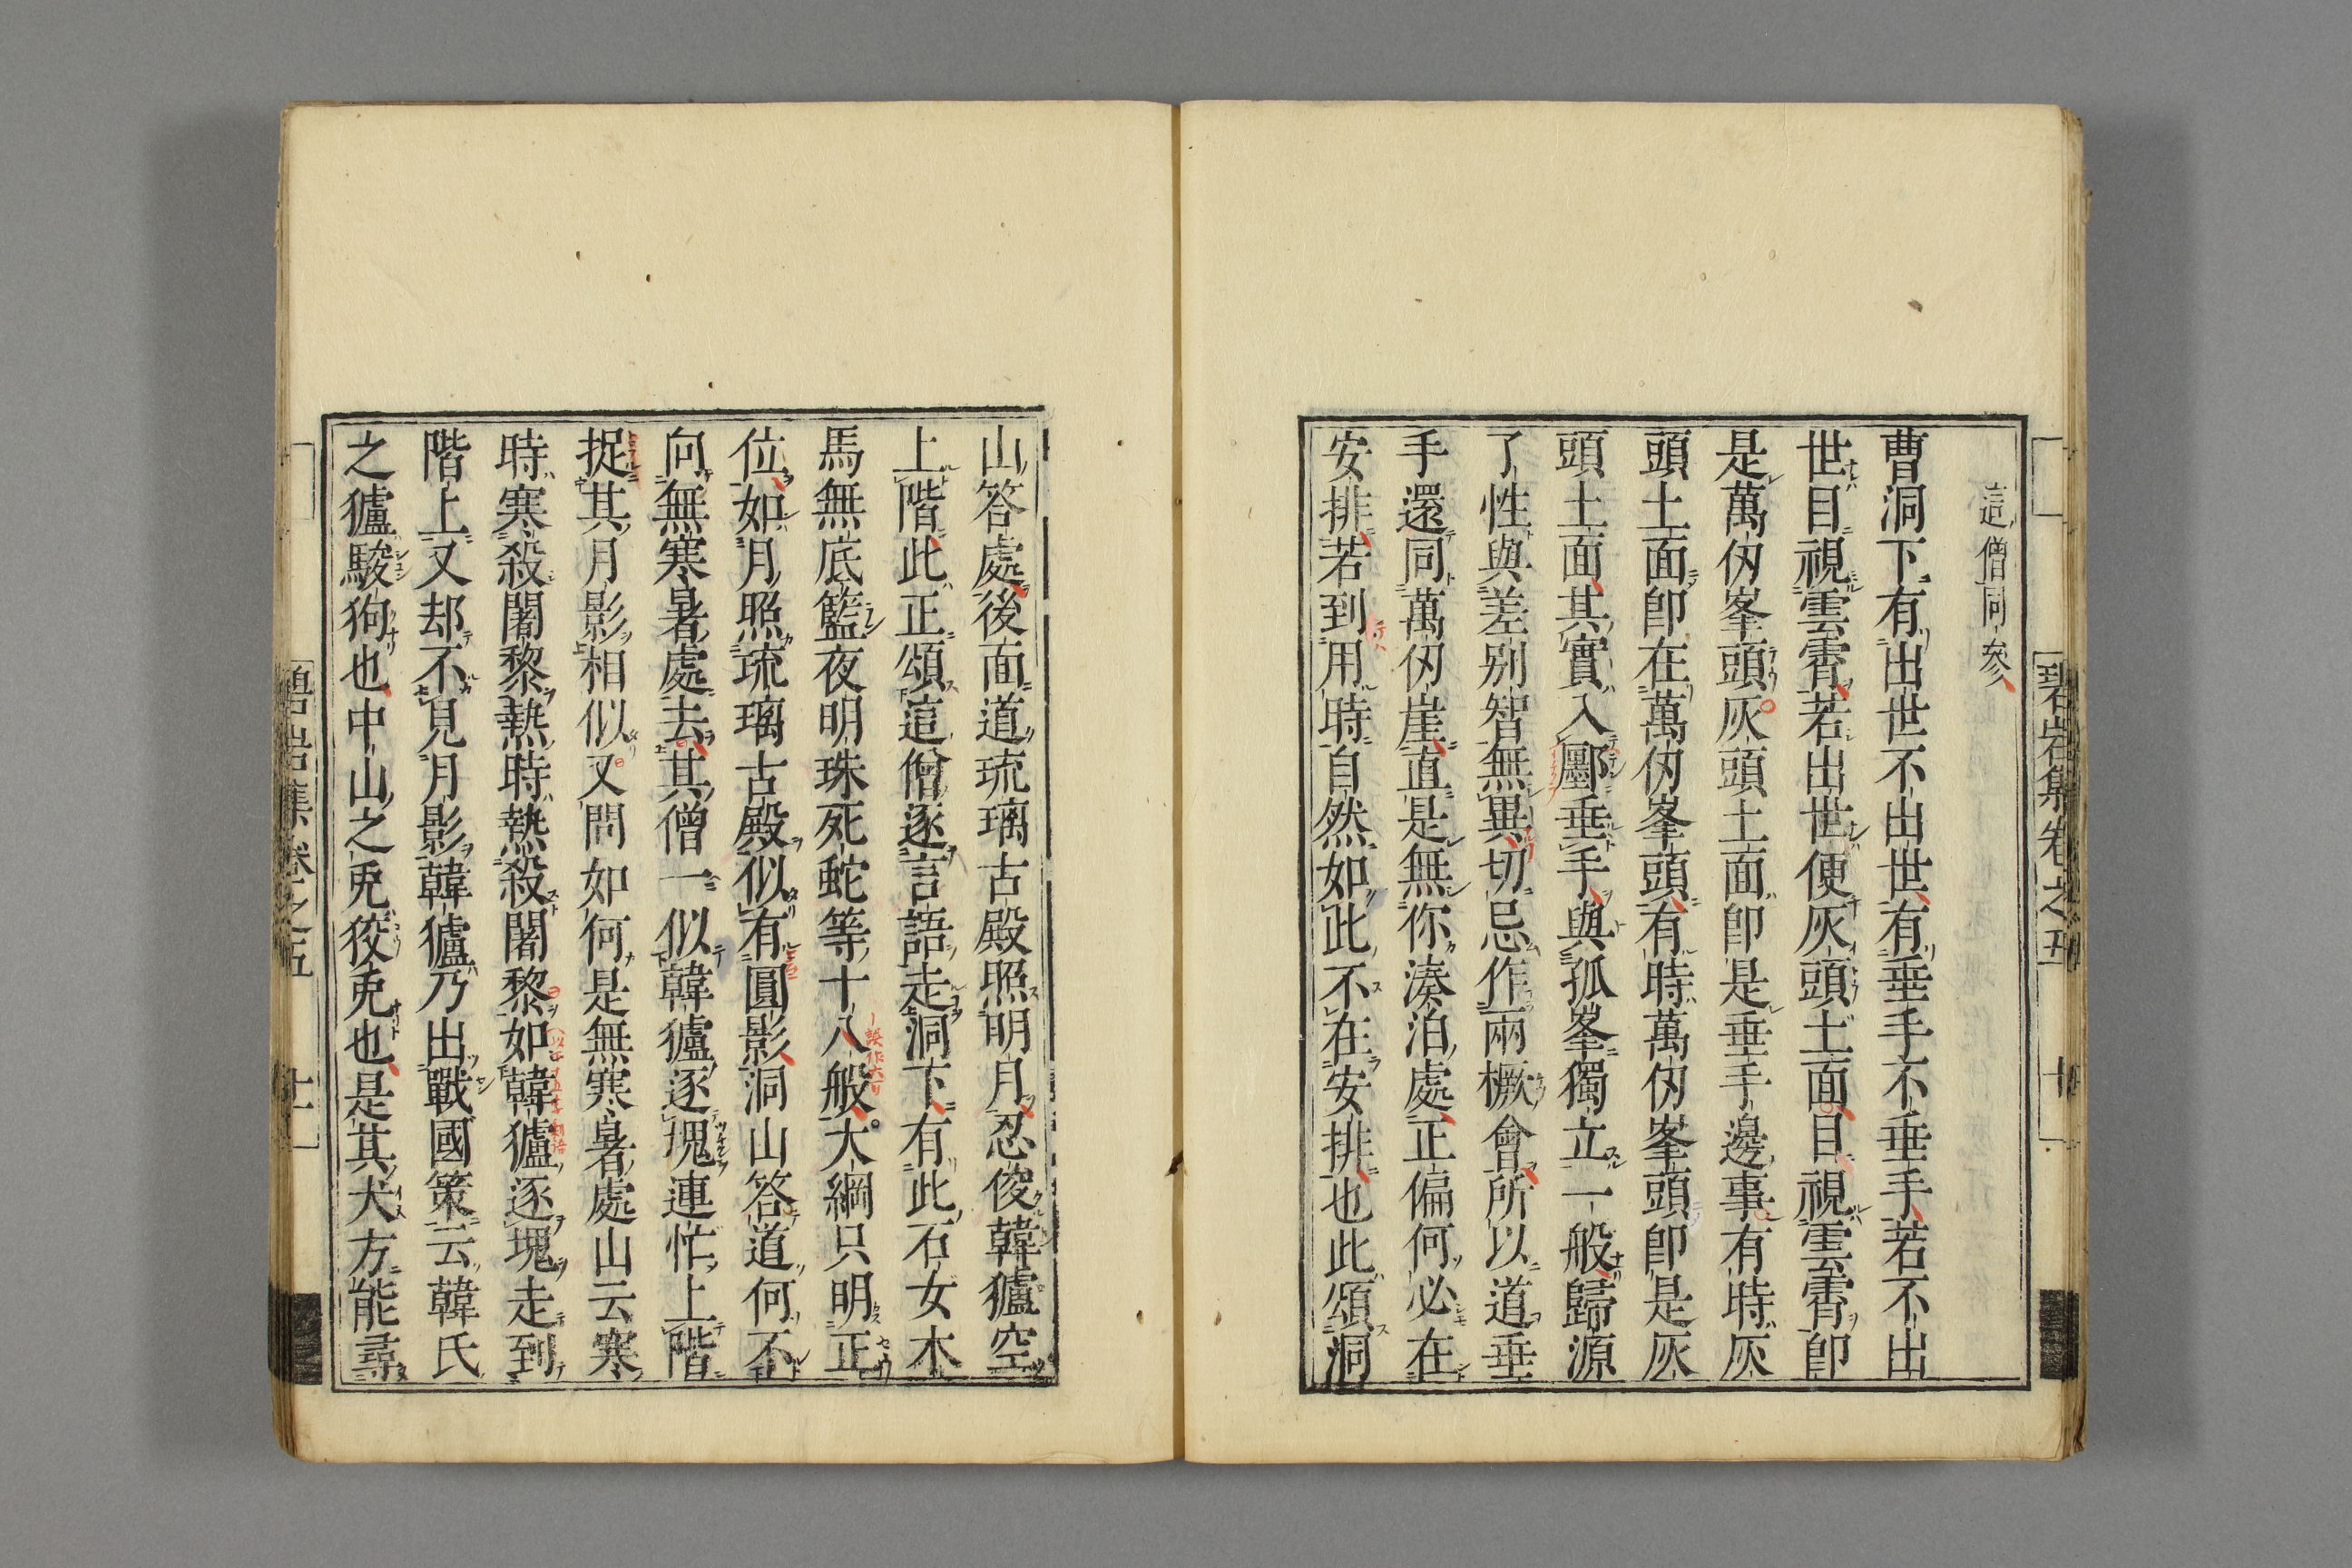 這僧同參
曹洞下有出世不出世有垂手不垂手若不出
世目視雲霄若出世便灰頭土面目視雲霄即
是萬仞峯頭灰頭土面即是垂手邊事有時灰
頭土面即在萬仞峯頭有時萬仞峯頭即是灰
頭土面其實入鄽垂手與孤峯獨立一般歸源
了性與差別智無異切忌作兩橛會所以道垂
手還同萬仞崖直是無你湊泊處正偏何必在
安排若到用時自然如此不在安排也此頌洞
碧岩集卷之五
十
山答處後面道琉璃古殿照明月忍俊韓獹空
上階此正頌這僧逐言語走洞下有此石女木
馬無底籃夜明珠死蛇等十八般大綱只明正
位如月照琉璃古殿似有圓影洞山答道何不
向無寒暑處去其僧一似韓獹逐塊連忙上階
捉其月影相似又問如何是無寒暑處山云寒
時寒殺闍黎熱時熱殺闍黎如韓獹逐塊走到
階上又却不見月影韓獹乃出戰國策云韓氏
之獹駿狗也中山之兎狡兎也是其犬方能尋
碧岩集卷之五
十一